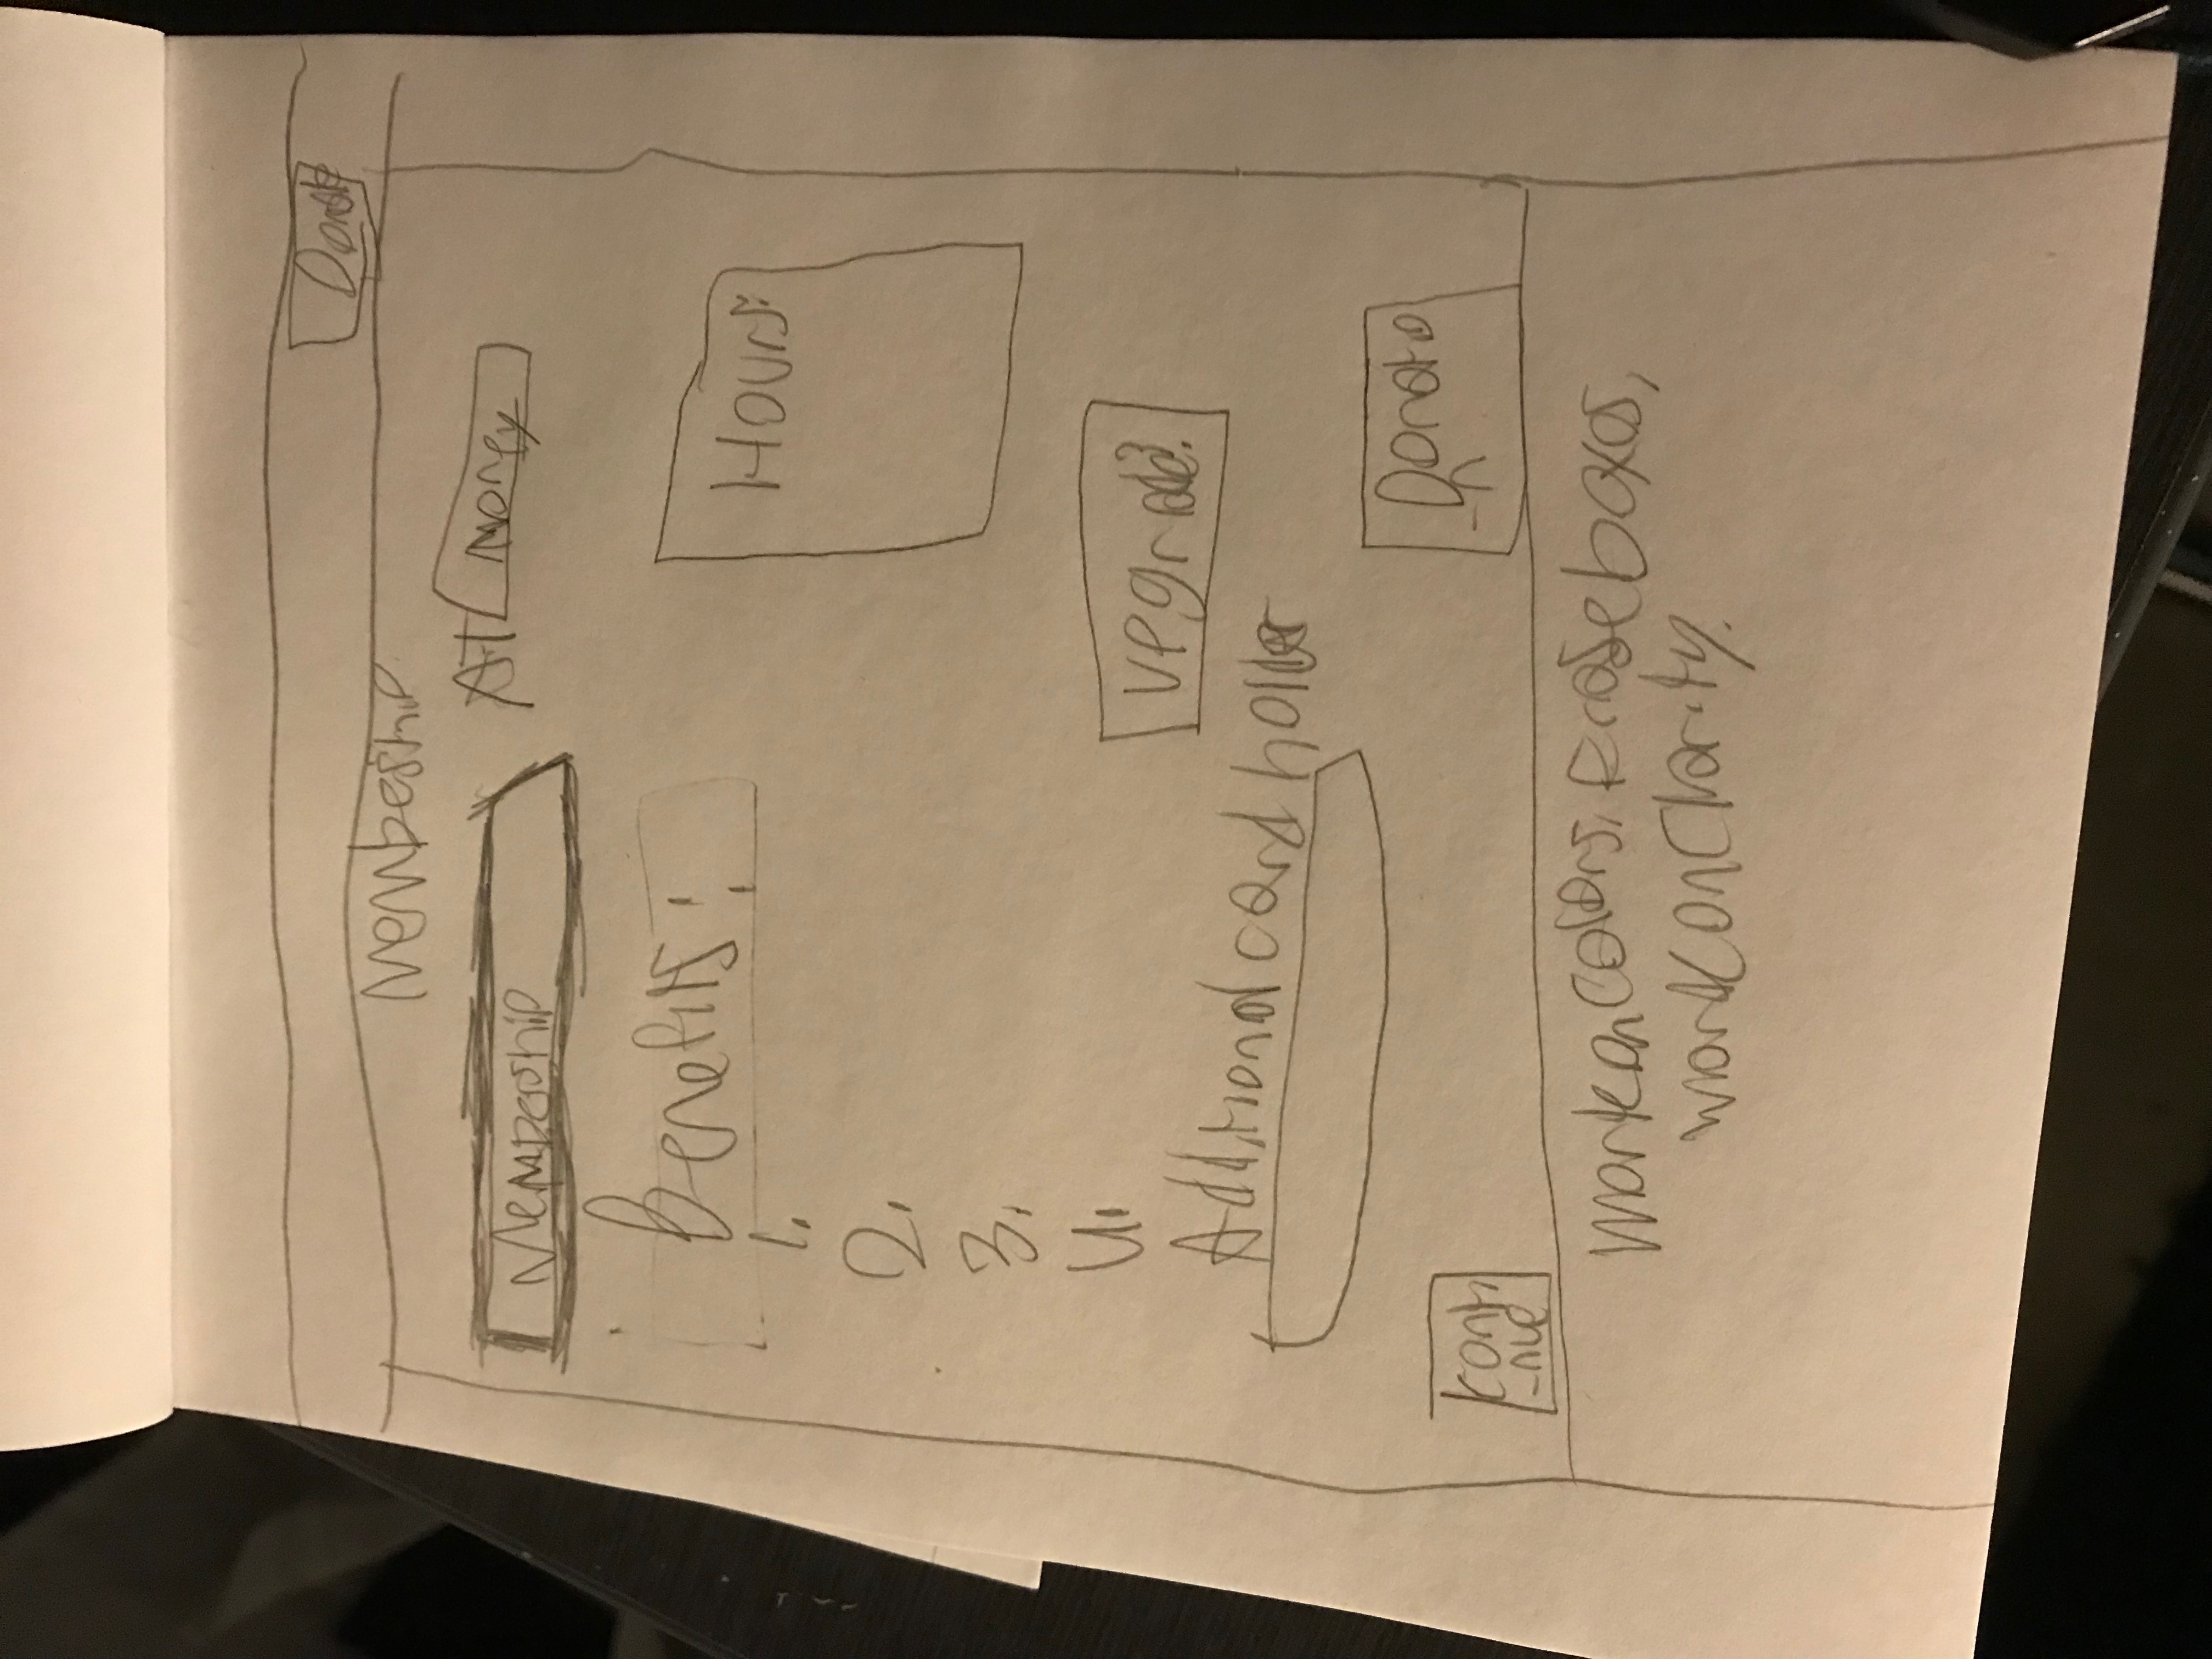 Donate
Membeship
Membership
AT Money
Benefits:
Hours:
1.
2.
3.
4.
Upgrade?
Additional card holder
Donatio
-n
Conti
-nue
Work on Colors, Erase boxes,
work on Clarity.